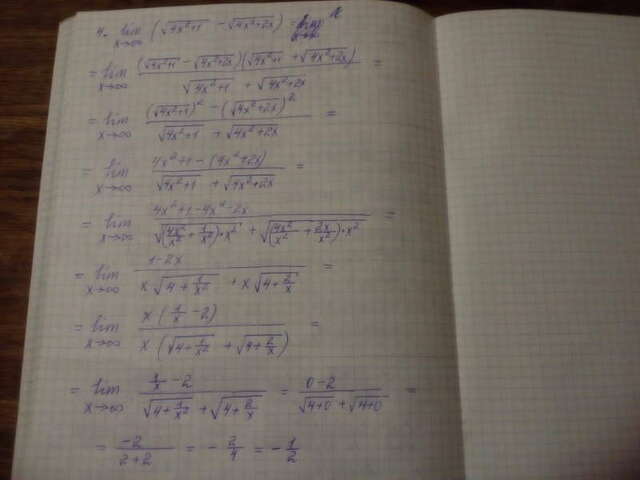 4. lim x→∞ (√(4x²+1) - √(4x²+2x)) =
= lim x→∞ ((√(4x²+1) - √(4x²+2x))(√(4x²+1) + √(4x²+2x))) / (√(4x²+1) + √(4x²+2x)) =
= lim x→∞ ((√(4x²+1))² - (√(4x²+2x))²) / (√(4x²+1) + √(4x²+2x)) =
= lim x→∞ (4x²+1-(4x²+2x)) / (√(4x²+1) + √(4x²+2x)) =
= lim x→∞ (4x²+1-4x²-2x) / (√((4x²/x² + 1/x²)·x²) + √((4x²/x² + 2x/x²)·x²)) =
= lim x→∞ (1-2x) / (x√(4+1/x²) + x√(4+2/x)) =
= lim x→∞ (x(1/x - 2)) / (x(√(4+1/x²) + √(4+2/x))) =
= lim x→∞ (1/x - 2) / (√(4+1/x²) + √(4+2/x)) = (0-2) / (√(4+0) + √(4+0)) =
= -2 / (2+2) = - 2/4 = - 1/2